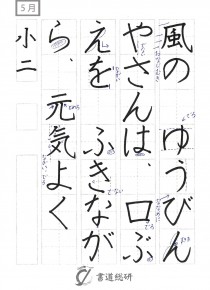 5月
風の　ゆうびん
やさんは、口ぶ
えを　ふきなが
ら、元気よく
小二
書道総研